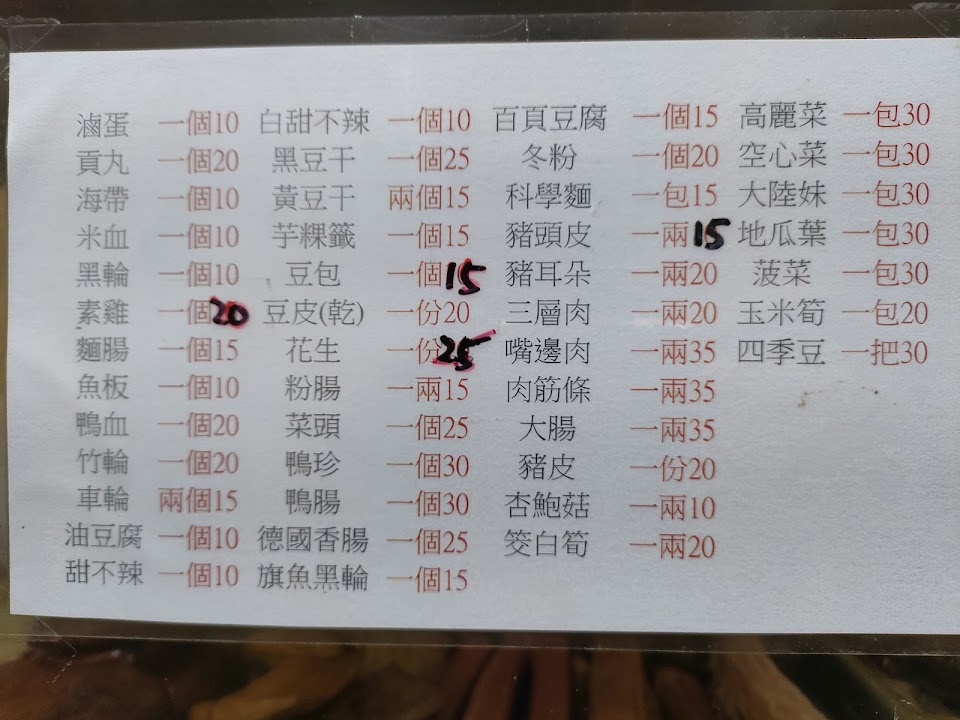 滷蛋 一個10 白甜不辣 一個10 百頁豆腐 一個15 高麗菜 一包30
貢丸 一個20 黑豆干 一個25 冬粉 一個20 空心菜 一包30
海帶 一個10 黃豆干 兩個15 科學麵 一包15 大陸妹 一包30
米血 一個10 芋粿籤 一個15 豬頭皮 一兩15 地瓜葉 一包30
黑輪 一個10 豆包 一個15 豬耳朵 一兩20 菠菜 一包30
素雞 一個20 豆皮(乾) 一份20 三層肉 一兩20 玉米筍 一包20
麵腸 一個15 花生 一份25 嘴邊肉 一兩35 四季豆 一把30
魚板 一個10 粉腸 一兩15 肉筋條 一兩35
鴨血 一個20 菜頭 一個25 大腸 一兩35
竹輪 一個20 鴨珍 一個30 豬皮 一份20
車輪 兩個15 鴨腸 一個30 杏鮑菇 一兩10
油豆腐 一個10 德國香腸 一個25 筊白筍 一兩20
甜不辣 一個10 旗魚黑輪 一個15